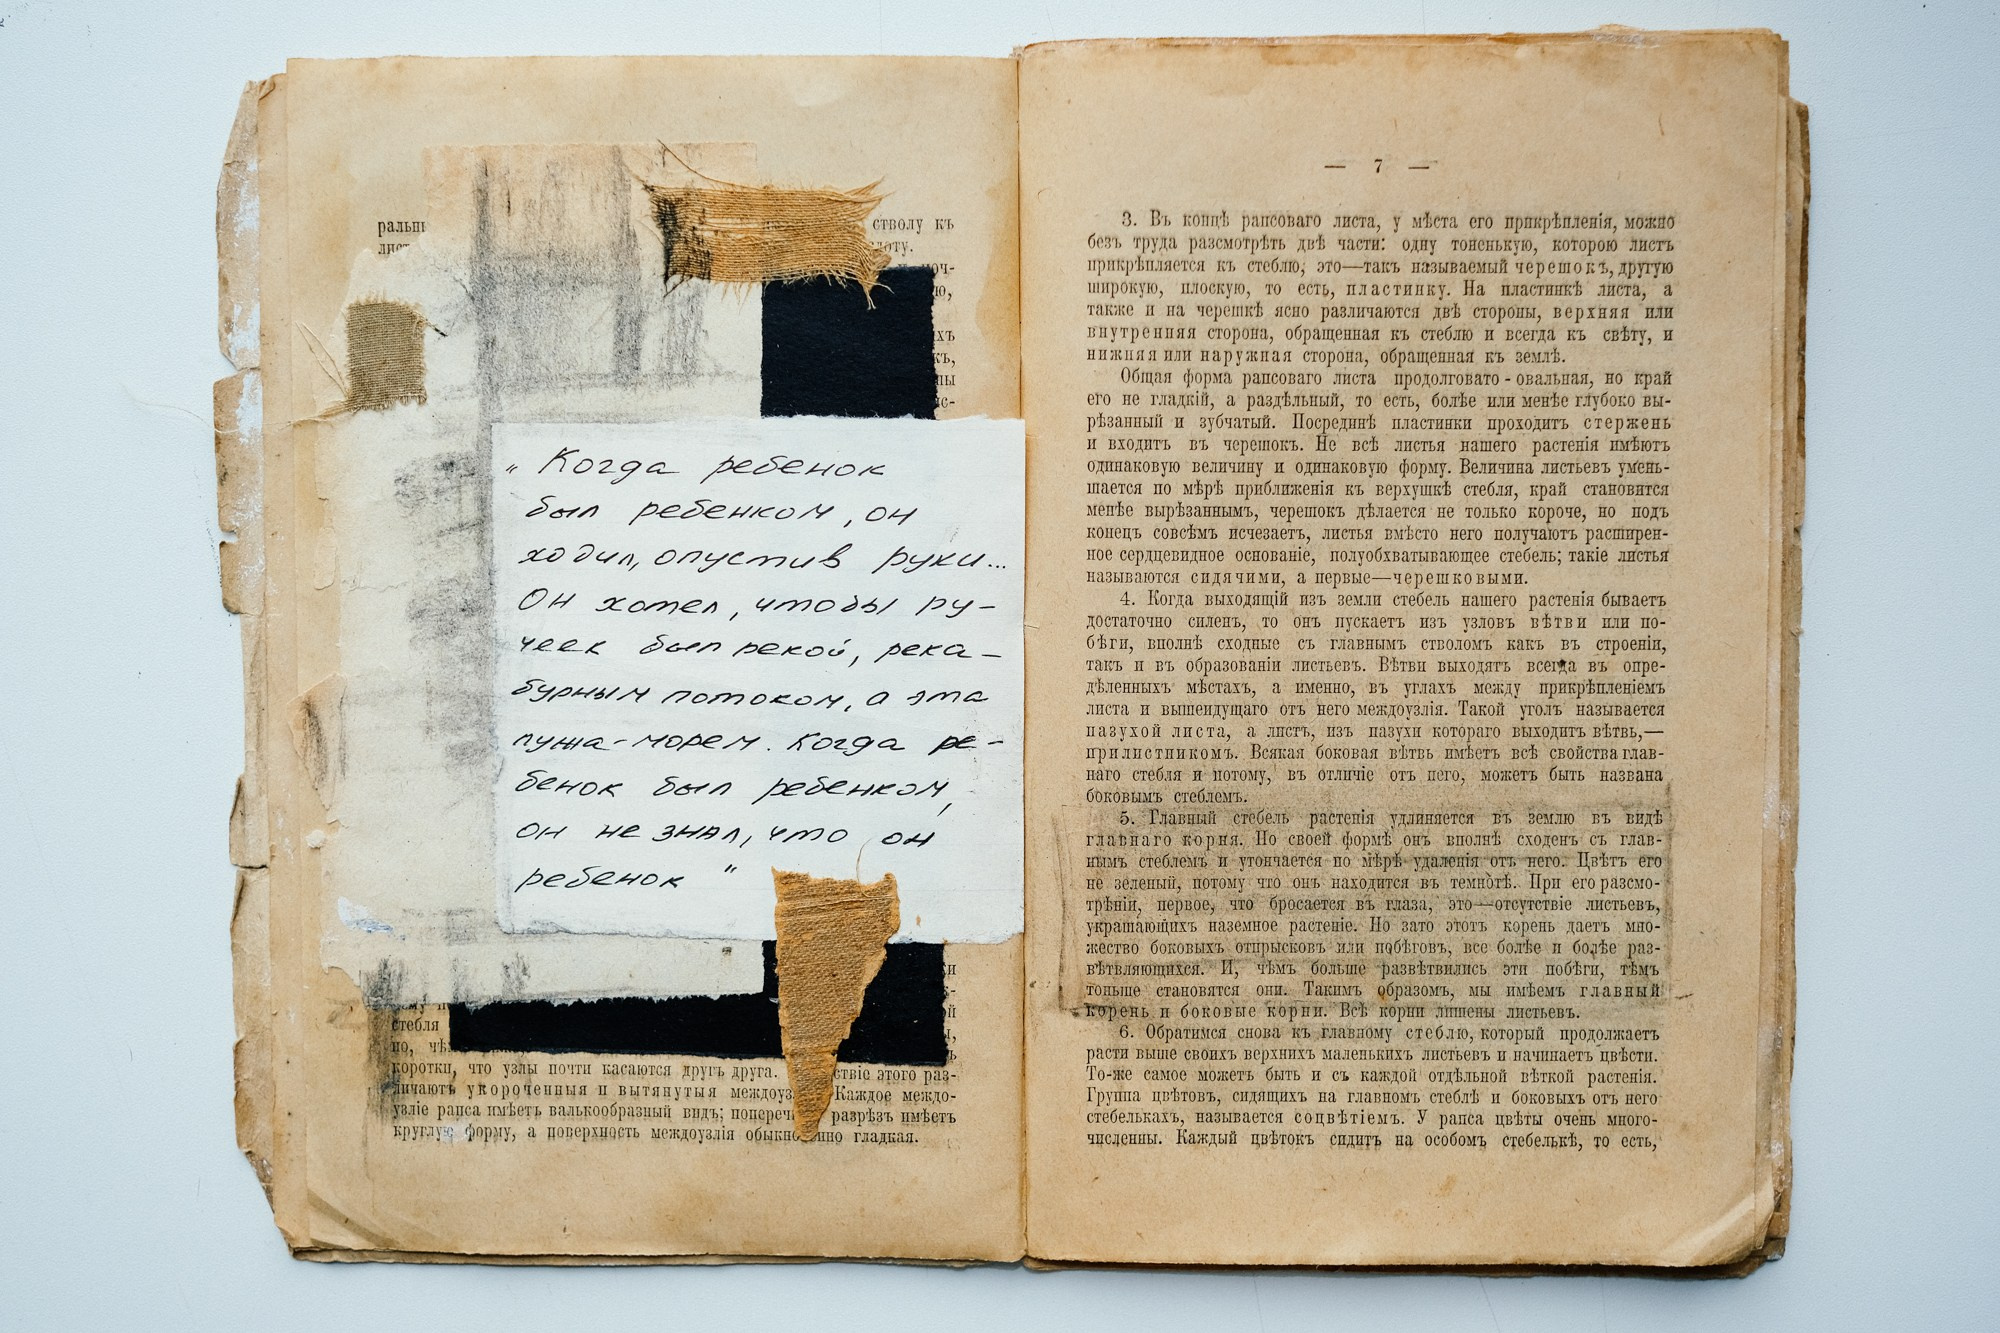 ральны стволу къ
лист
„Когда ребенок
был ребенком, он
ходил, опустив руки...
Он хотел, чтобы ру-
чеек был рекой, река-
бурным потоком, а эта
лужа-морем. Когда ре-
бенок был ребенком,
он не знал, что он
ребенок"
стебля
но,
коротки, что узлы почти касаются другъ друга. ствіе этого раз-
личаютъ укороченныя и вытянутыя междоуз Каждое междо-
узліе рапса имѣетъ валькообразный видъ; попереч разрѣзъ имѣетъ
круглую форму, а поверхность междоузлія обыкно нно гладкая.
— 7 —
3. Въ концѣ рапсоваго листа, у мѣста его прикрѣпленія, можно
безъ труда разсмотрѣть двѣ части: одну тоненькую, которою листъ
прикрѣпляется къ стеблю, это—такъ называемый черешокъ, другую
широкую, плоскую, то есть, пластинку. На пластинкѣ листа, а
также и на черешкѣ ясно различаются двѣ стороны, верхняя или
внутренняя сторона, обращенная къ стеблю и всегда къ свѣту, и
нижняя или наружная сторона, обращенная къ землѣ.
Общая форма рапсоваго листа продолговато-овальная, но край
его не гладкій, а раздѣльный, то есть, болѣе или менѣе глубоко вы-
рѣзанный и зубчатый. Посрединѣ пластинки проходитъ стержень
и входитъ въ черешокъ. Не всѣ листья нашего растенія имѣютъ
одинаковую величину и одинаковую форму. Величина листьевъ умень-
шается по мѣрѣ приближенія къ верхушкѣ стебля, край становится
менѣе вырѣзаннымъ, черешокъ дѣлается не только короче, но подъ
конецъ совсѣмъ исчезаетъ, листья вмѣсто него получаютъ расширен-
ное сердцевидное основаніе, полуобхватывающее стебель; такіе листья
называются сидячими, а первые—черешковыми.
4. Когда выходящій изъ земли стебель нашего растенія бываетъ
достаточно силенъ, то онъ пускаетъ изъ узловъ вѣтви или по-
бѣги, вполнѣ сходные съ главнымъ стволомъ какъ въ строеніи,
такъ и въ образованіи листьевъ. Вѣтви выходятъ всегда въ опре-
дѣленныхъ мѣстахъ, а именно, въ углахъ между прикрѣпленіемъ
листа и вышеидущаго отъ него междоузлія. Такой уголъ называется
пазухой листа, а листъ, изъ пазухи котораго выходитъ вѣтвь,—
прилистникомъ. Всякая боковая вѣтвь имѣетъ всѣ свойства глав-
наго стебля и потому, въ отличіе отъ него, можетъ быть названа
боковымъ стеблемъ.
5. Главный стебель растенія удлиняется въ землю въ видѣ
главнаго корня. По своей формѣ онъ вполнѣ сходенъ съ глав-
нымъ стеблемъ и утончается по мѣрѣ удаленія отъ него. Цвѣтъ его
не зеленый, потому что онъ находится въ темнотѣ. При его разсмо-
трѣніи, первое, что бросается въ глаза, это—отсутствіе листьевъ,
украшающихъ наземное растеніе. Но зато этотъ корень даетъ мно-
жество боковыхъ отпрысковъ или побѣговъ, все болѣе и болѣе раз-
вѣтвляющихся. И, чѣмъ больше развѣтвились эти побѣги, тѣмъ
тоньше становятся они. Такимъ образомъ, мы имѣемъ главный
корень и боковые корни. Всѣ корни лишены листьевъ.
6. Обратимся снова къ главному стеблю, который продолжаетъ
расти выше своихъ верхнихъ маленькихъ листьевъ и начинаетъ цвѣсти.
То-же самое можетъ быть и съ каждой отдѣльной вѣткой растенія.
Группа цвѣтовъ, сидящихъ на главномъ стеблѣ и боковыхъ отъ него
стебелькахъ, называется соцвѣтіемъ. У рапса цвѣты очень много-
численны. Каждый цвѣтокъ сидитъ на особомъ стебелькѣ, то есть,